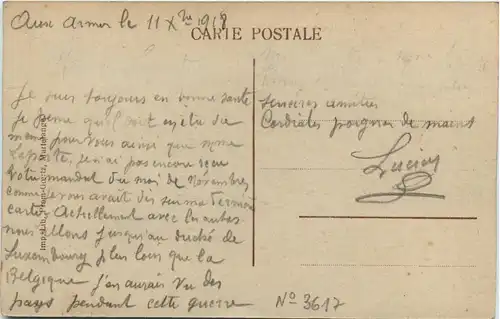 Aux Armes le 11 Xbre 1918
CARTE POSTALE
Je suis toujours en bonne santé
je pense qu'il soit en étu du
meme pour vous ainsi que mme
Laporte, je n'ai pas encore reçu
votre mandat du moi de Novembre
comme vous avait dis sur ma derniere
carte. Actuellement avec les autres
nous allons jusqu'au duché de
Luxembourg plus loin que la
Belgique j'en aurais vu des
pays pendant cette guerre
sincères amitiés
Cordiales poignées de mains
Lucien
No 3617